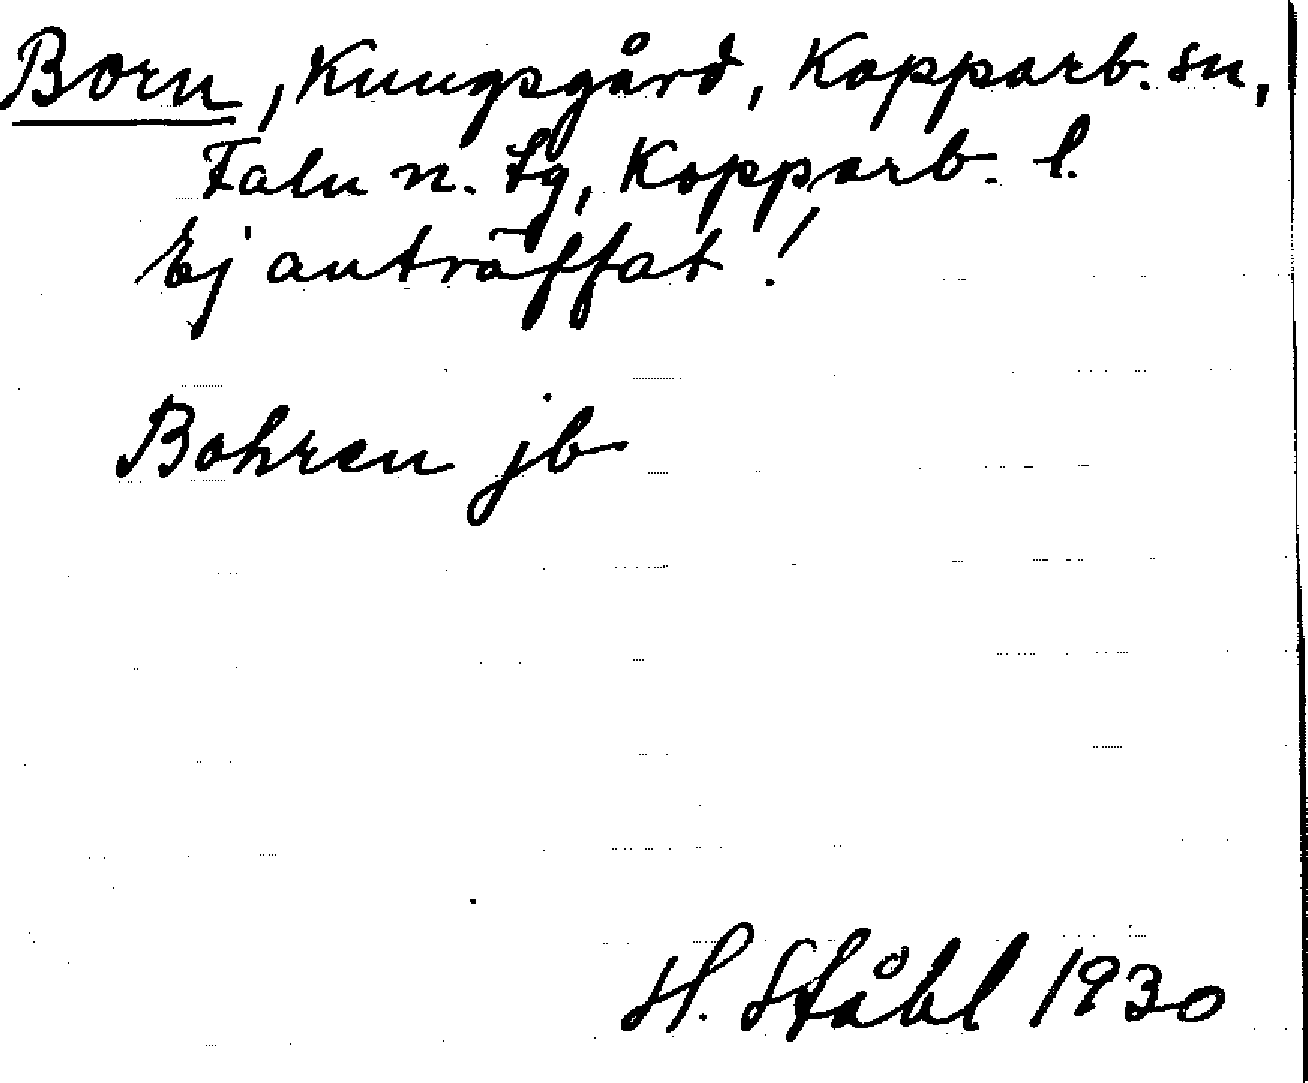 Born, Kungsgård, Kopparb. sn,
Falu n. tg, Kopparb. l.
Ej anträffat!
Bohren jb
H. Ståhl 1930